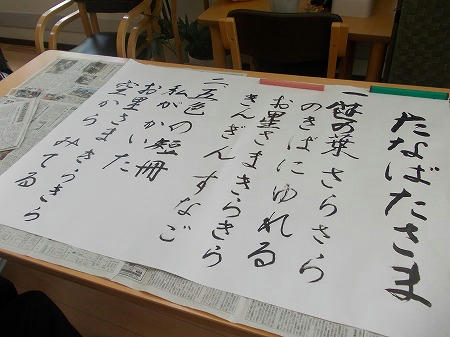 たなばたさま
一 笹の葉 さらさら
のきばに ゆれる
お星さま きらきら
きんぎん すなご
二 五色の 短冊
私が かいた
お星さま きらきら
空から みてる